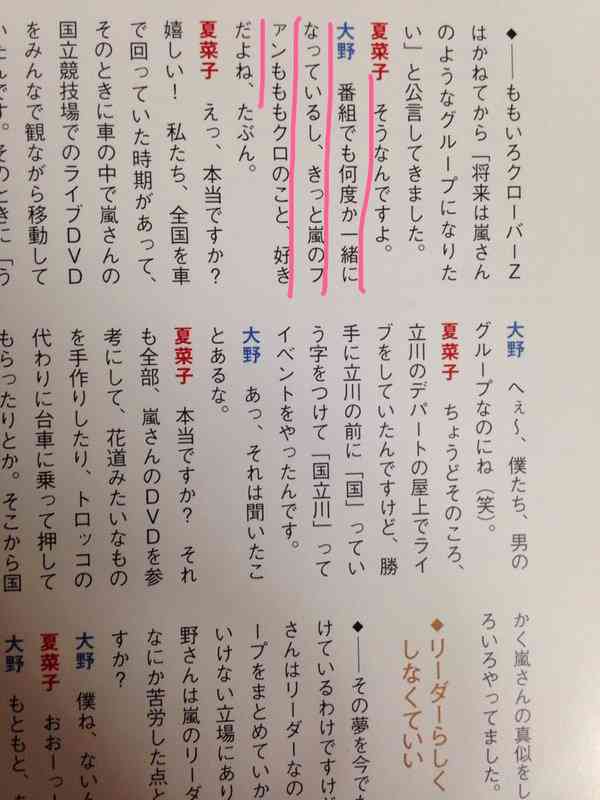 ◆――ももいろクローバーZ
はかねてから「将来は嵐さん
のようなグループになりた
い」と公言してきました。
夏菜子　そうなんですよ。
大野　番組でも何度か一緒に
なっているし、きっと嵐のフ
ァンもももクロのこと、好き
だよね、たぶん。
夏菜子　えっ、本当ですか？
嬉しい！　私たち、全国を車
で回っていた時期があって、
そのときに車の中で嵐さんの
国立競技場でのライブDVD
をみんなで観ながら移動して
いたんです。そのときに「う
大野　へぇ〜、僕たち、男の
グループなのにね（笑）。
夏菜子　ちょうどそのころ、
立川のデパートの屋上でライ
ブをしていたんですけど、勝
手に立川の前に「国」ってい
う字をつけて「国立川」って
イベントをやったんです。
大野　あっ、それは聞いたこ
とあるな。
夏菜子　本当ですか？　それ
も全部、嵐さんのDVDを参
考にして、花道みたいなもの
を手作りしたり、トロッコの
代わりに台車に乗って押して
もらったりとか。そこから国
かく嵐さんの真似をし
ろいろやってました。
◆リーダーらしく
しなくていい
◆――その夢を今でも
けているわけですけど
さんはリーダーなの
ープをまとめていか
いけない立場にあり
野さんは嵐のリーダ
なにか苦労した点と
すか？
大野　僕ね、ないん
夏菜子　おおーっ
大野　もともと、